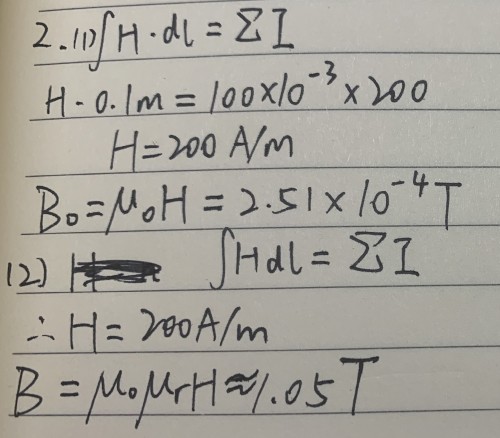 2.(1)∫H·dl=ΣI
H·0.1m=100×10⁻³×200
H=200A/m
B₀=μ₀H=2.51×10⁻⁴T
(2) ∫Hdl=ΣI
∴H=200A/m
B=μ₀μᵣH≈1.05T